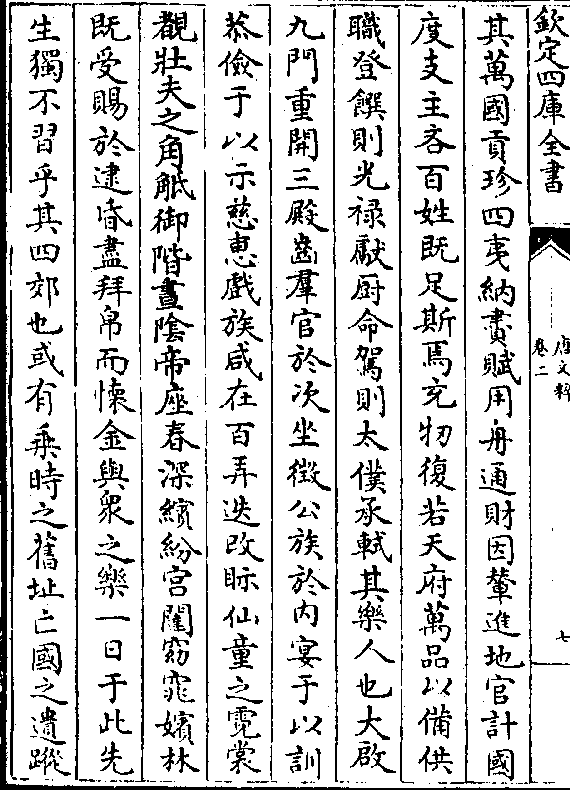 欽定四庫全書
唐文粹
卷二
七
其萬國貢珍四夷納賮賦用舟通財因輦進地官計國
度支主吝百姓既足斯焉充牣復若天府萬品以備供
職登饌則光禄獻厨命駕則太僕承軾其樂人也大啟
九門重開三殿齒羣官於次坐徵公族於内宴于以訓
恭儉于以示慈惠戲族咸在百弄迭改眎仙童之霓裳
觀壯夫之角觝御階晝陰帝座春深繽紛宮闈窈窕嬪林
既受賜於逮昏盡拜帛而懐金與衆之樂一日于此先
生獨不習乎其四郊也或有乗時之舊址亡國之遺蹤